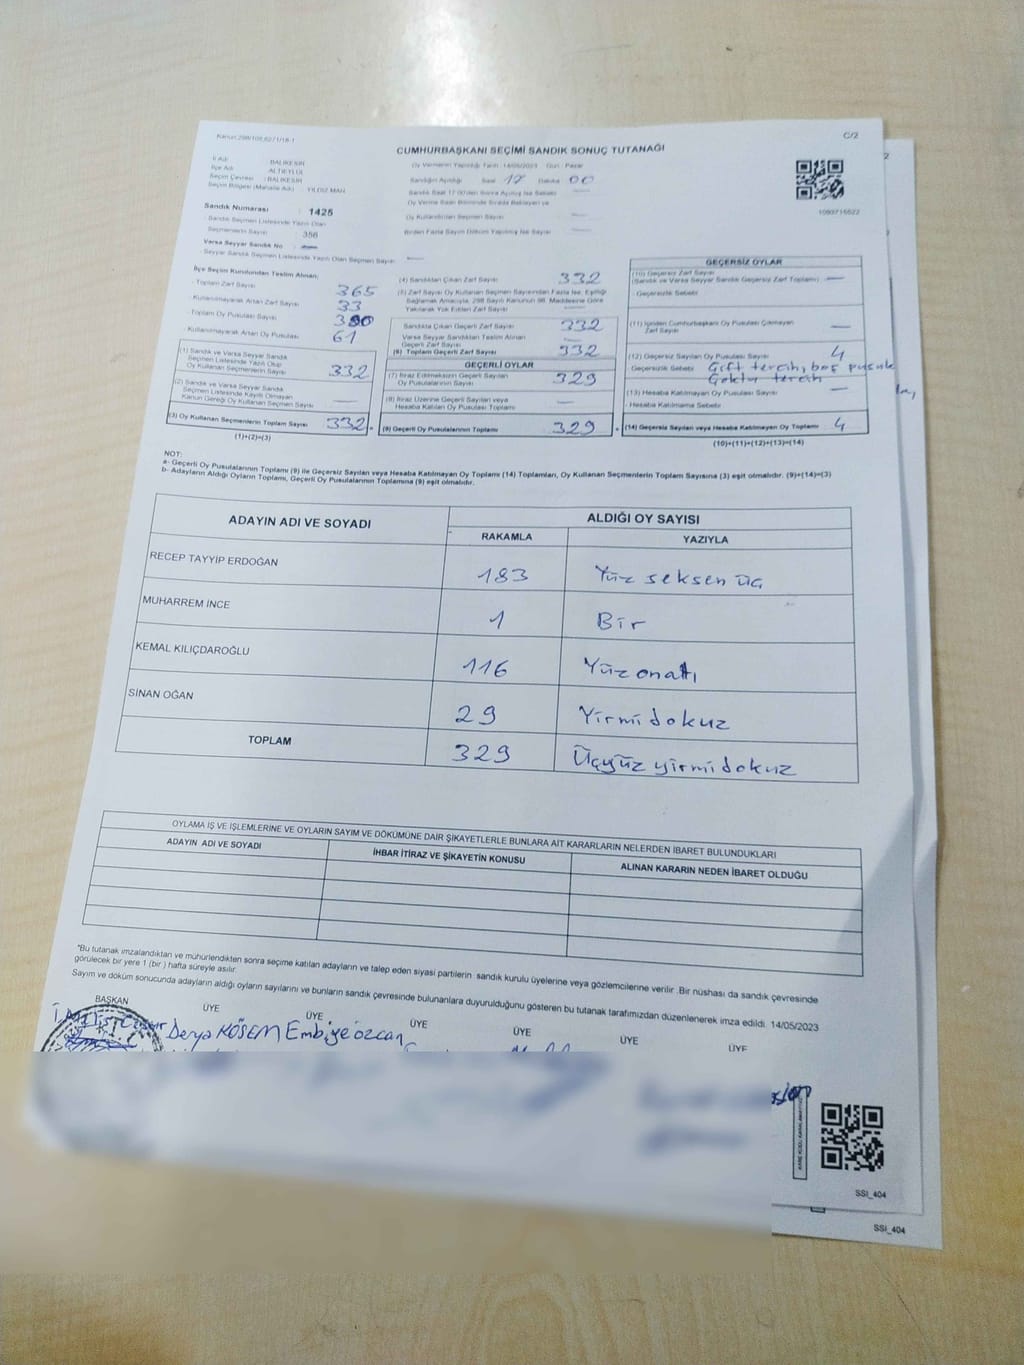 Kanun:298/105,6271/18-1
C/2
CUMHURBAŞKANI SEÇİMİ SANDIK SONUÇ TUTANAĞI
İl Adı : BALIKESİR
İlçe Adı : ALTIEYLÜL
Seçim Çevresi : BALIKESİR
Seçim Bölgesi (Mahalle Adı) : YILDIZ MAH.
Sandık Numarası : 1425
Sandık Seçmen Listesinde Yazılı Olan
Seçmenlerin Sayısı : 356
Varsa Seyyar Sandık No : —
Seyyar Sandık Seçmen Listesinde Yazılı Olan Seçmen Sayısı —
Oy Vermenin Yapıldığı Tarih : 14/05/2023 Gün : Pazar
Sandığın Açıldığı Saat 17 Dakika 00
Sandık Saat 17:00'den Sonra Açılmış İse Sebebi —
Oy Verme Saati Bitiminde Sırada Bekleyen ve
Oy Kullandırılan Seçmen Sayısı —
Birden Fazla Sayım Döküm Yapılmış İse Sayısı —
1093715522
İlçe Seçim Kurulundan Teslim Alınan;
- Toplam Zarf Sayısı 365
- Kullanılmayarak Artan Zarf Sayısı 33
- Toplam Oy Pusulası Sayısı
- Kullanılmayarak Artan Oy Pusulası 61
(1) Sandık ve Varsa Seyyar Sandık
Seçmen Listesinde Yazılı Olup
Oy Kullanan Seçmenlerin Sayısı 332
(2) Sandık ve Varsa Seyyar Sandık
Seçmen Listesinde Kayıtlı Olmayan
Kanun Gereği Oy Kullanan Seçmen Sayısı —
(3) Oy Kullanan Seçmenlerin Toplam Sayısı 332
(1)+(2)=(3)
(4) Sandıktan Çıkan Zarf Sayısı 332
(5) Zarf Sayısı Oy Kullanan Seçmen Sayısından Fazla İse, Eşitliği
Sağlamak Amacıyla, 298 Sayılı Kanunun 98. Maddesine Göre
Yakılarak Yok Edilen Zarf Sayısı —
Sandıkta Çıkan Geçerli Zarf Sayısı 332
Varsa Seyyar Sandıktan Teslim Alınan
Geçerli Zarf Sayısı —
(6) Toplam Geçerli Zarf Sayısı 332
GEÇERLİ OYLAR
(7) İtiraz Edilmeksizin Geçerli Sayılan
Oy Pusulalarının Sayısı 329
(8) İtiraz Üzerine Geçerli Sayılan veya
Hesaba Katılan Oy Pusulası Toplamı —
(9) Geçerli Oy Pusulalarının Toplamı 329
GEÇERSİZ OYLAR
(10) Geçersiz Zarf Sayısı
(Sandık ve Varsa Seyyar Sandık Geçersiz Zarf Toplamı) —
- Geçersizlik Sebebi
(11) İçinden Cumhurbaşkanı Oy Pusulası Çıkmayan
Zarf Sayısı —
(12) Geçersiz Sayılan Oy Pusulası Sayısı 4
Geçersizlik Sebebi Çift tercih, boş pusula,
Çoklu tercih
(13) Hesaba Katılmayan Oy Pusulası Sayısı —
- Hesaba Katılmama Sebebi
(14) Geçersiz Sayılan veya Hesaba Katılmayan Oy Toplamı 4
(10)+(11)+(12)+(13)=(14)
NOT:
a- Geçerli Oy Pusulalarının Toplamı (9) ile Geçersiz Sayılan veya Hesaba Katılmayan Oy Toplamı (14) Toplamları, Oy Kullanan Seçmenlerin Toplam Sayısına (3) eşit olmalıdır. (9)+(14)=(3)
b- Adayların Aldığı Oyların Toplamı, Geçerli Oy Pusulalarının Toplamına (9) eşit olmalıdır.
ADAYIN ADI VE SOYADI
ALDIĞI OY SAYISI
RAKAMLA YAZIYLA
RECEP TAYYİP ERDOĞAN 183 Yüz seksen üç
MUHARREM İNCE 1 Bir
KEMAL KILIÇDAROĞLU 116 Yüz onaltı
SİNAN OĞAN 29 Yirmi dokuz
TOPLAM 329 Üçyüz yirmi dokuz
OYLAMA İŞ VE İŞLEMLERİNE VE OYLARIN SAYIM VE DÖKÜMÜNE DAİR ŞİKAYETLERLE BUNLARA AİT KARARLARIN NELERDEN İBARET BULUNDUKLARI
ADAYIN ADI VE SOYADI İHBAR İTİRAZ VE ŞİKAYETİN KONUSU ALINAN KARARIN NEDEN İBARET OLDUĞU
*Bu tutanak imzalandıktan ve mühürlendikten sonra seçime katılan adayların ve talep eden siyasi partilerin sandık kurulu üyelerine veya gözlemcilerine verilir .Bir nüshası da sandık çevresinde
görülecek bir yere 1 (bir ) hafta süreyle asılır.
Sayım ve döküm sonucunda adayların aldığı oyların sayılarını ve bunların sandık çevresinde bulunanlara duyurulduğunu gösteren bu tutanak tarafımızdan düzenlenerek imza edildi. 14/05/2023
BAŞKAN ÜYE ÜYE ÜYE ÜYE ÜYE ÜYE
Derya KÖSEM Embiye özcan
SSİ_404
SSİ_404